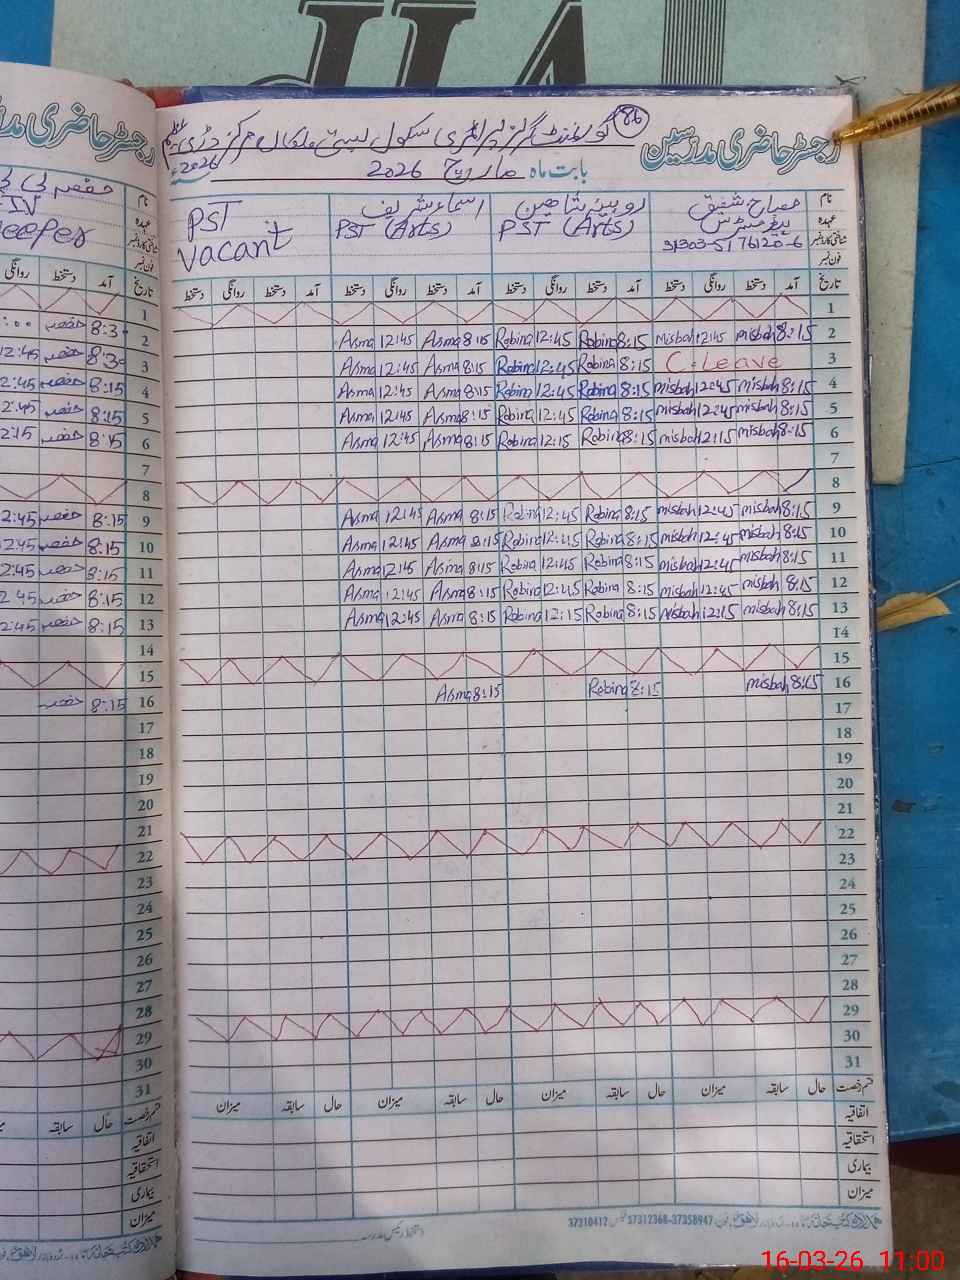 VIP
86
گورنمنٹ گرلز پرائمری سکول بستی ملوکاں مرکز
رجسٹر حاضری مدرسین
بابت ماہ مارچ 2026
2026
نام
عہدہ
شناختی کارڈ نمبر
فون نمبر
مصباح شفیق
ہیڈ مسٹریس
31303-5176120-6
روبینہ شاہین
PST (Arts)
اسماء شریف
PST (Arts)
PST
Vacant
تاریخ آمد دستخط روانگی دستخط آمد دستخط روانگی دستخط آمد دستخط روانگی دستخط آمد دستخط روانگی دستخط
1
2 8:15 misbah 12:45 misbah 8:15 Robina 12:45 Robina 8:15 Asma 12:45 Asma
3 C.Leave 8:15 Robina 12:45 Robina 8:15 Asma 12:45 Asma
4 8:15 misbah 12:45 misbah 8:15 Robina 12:45 Robina 8:15 Asma 12:45 Asma
5 8:15 misbah 12:45 misbah 8:15 Robina 12:45 Robina 8:15 Asma 12:45 Asma
6 8:15 misbah 12:15 misbah 8:15 Robina 12:15 Robina 8:15 Asma 12:45 Asma
7
8
9 8:15 misbah 12:45 misbah 8:15 Robina 12:45 Robina 8:15 Asma 12:45 Asma
10 8:15 misbah 12:45 misbah 8:15 Robina 12:45 Robina 8:15 Asma 12:45 Asma
11 8:15 misbah 12:45 misbah 8:15 Robina 12:45 Robina 8:15 Asma 12:45 Asma
12 8:15 misbah 12:45 misbah 8:15 Robina 12:45 Robina 8:15 Asma 12:45 Asma
13 8:15 misbah 12:15 Misbah 8:15 Robina 12:15 Robina 8:15 Asma 12:45 Asma
14
15
16 8:15 misbah 8:15 Robina 8:15 Asma
17
18
19
20
21
22
23
24
25
26
27
28
29
30
31
قسم رخصت حال سابقہ میزان حال سابقہ میزان حال سابقہ میزان
اتفاقیہ
استحقاقیہ
بیماری
میزان
37310412 37312368-37358947
دستخط رئیس مدرسہ
رجسٹر حاضری
IV
تاریخ آمد دستخط روانگی
1
2 8:30
3 8:30 12:45
4 8:15 2:45
5 8:15 2:45
6 8:15 2:15
7
8
9 8:15 2:45
10 8:15 2:45
11 8:15 2:45
12 8:15 2 45
13 8:15 2:45
14
15
16 8:15
17
18
19
20
21
22
23
24
25
26
27
28
29
30
31
قسم رخصت حال سابقہ
اتفاقیہ
استحقاقیہ
بیماری
میزان
16-03-26 11:00